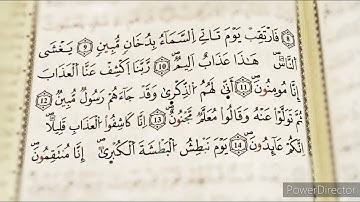 ⑧ فَارْتَقِبْ يَوْمَ تَأْتِي السَّمَاءُ بِدُخَانٍ مُّبِينٍ ⑨ يَغْشَى
النَّاسَ هَٰذَا عَذَابٌ أَلِيمٌ ⑩ رَّبَّنَا اكْشِفْ عَنَّا الْعَذَابَ
إِنَّا مُومِنُونَ ⑪ أَنَّىٰ لَهُمُ الذِّكْرَىٰ وَقَدْ جَاءَهُمْ رَسُولٌ مُّبِينٌ ⑫
ثُمَّ تَوَلَّوْا عَنْهُ وَقَالُوا مُعَلَّمٌ مَّجْنُونٌ ⑬ إِنَّا كَاشِفُوا الْعَذَابِ قَلِيلًا
إِنَّكُمْ عَائِدُونَ ⑭ يَوْمَ نَبْطِشُ الْبَطْشَةَ الْكُبْرَىٰ إِنَّا مُنتَقِمُونَ
PowerDirector